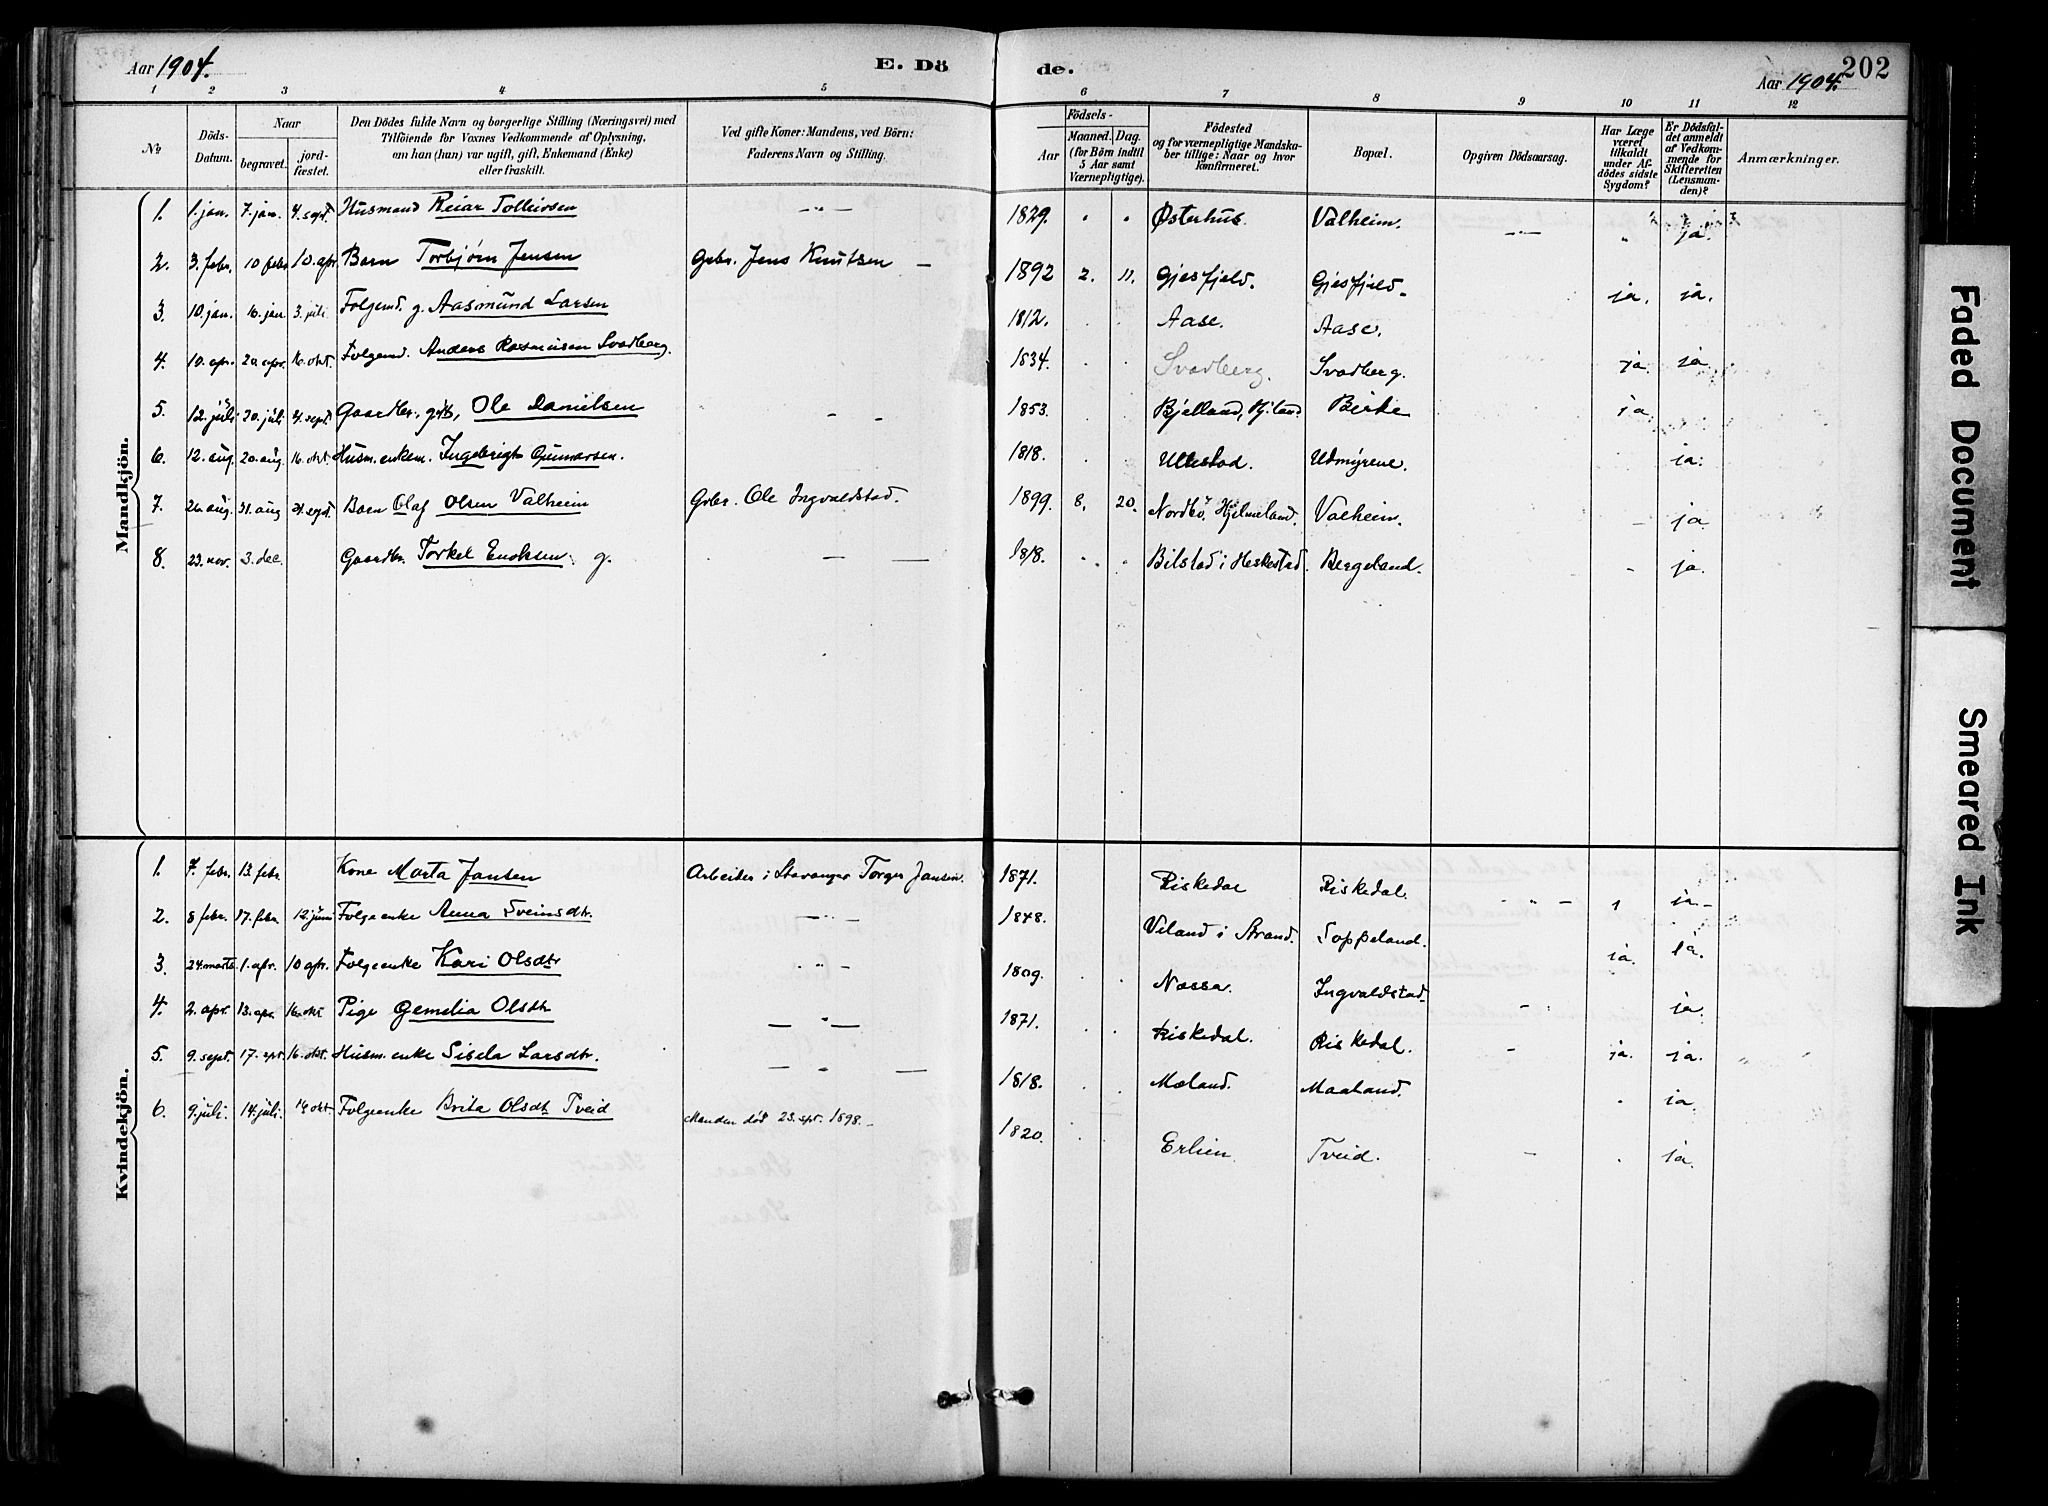 Aar 1904. E. Dö de. Aar 1904. 202
1 2 3 4 5 6 7 8 9 10 11 12
No. Döds-Datum. Naar begravet. jordfæstet. Den Dödes fulde Navn og borgerlige Stilling (Næringsvei) med Tilföiende for Voxnes Vedkommende af Oplysning, om han (hun) var ugift, gift, Enkemand (Enke) eller fraskilt. Ved gifte Koner: Mandens, ved Börn: Faderens Navn og Stilling. Födsels- Aar Maaned. Dag. (for Börn indtil 5 Aar samt Værnepligtige). Födested og for værnepligtige Mandskaber tillige: Naar og hvor konfirmeret. Bopæl. Opgiven Dödsaarsag. Har Læge været tilkaldt under Afdödes sidste Sygdom? Er Dödsfaldet anmeldt af Vedkommende for Skifteretten (Lensmanden)? Anmærkninger.
Mandkjön.
1. 1. jan. 7. jan. 4. sept. Husmand Reiar Tolleivsen — " — 1829. " " Østerhus. Valheim. — " — " ja.
2. 3. febr. 10 febr 10. apr. Barn Torbjørn Jensen Grbr. Jens Knutsen — 1892 2. 11. Gjesfjeld. Gjesfjeld. ja. ja.
3. 10. jan. 16. jan 3. juli Folgemd. g. Aasmund Larsen 1812. Aase. Aase.
4. 10. apr. 20. apr. 16. okt. Folgemd. Anders Rasmusen Svadberg. 1834. Svadberg. Svadberg. ja. ja
5. 12. juli 20. juli 4. sept. Gaardbr. gift, Ole Danielsen — — 1853. Bjelland, Birke ja.
6. 12. aug. 20. aug. 16. okt. Husm. enkem. Ingebrigt Gunnarsen. 1818. Ullestad. Udmyrene. ja.
7. 26. aug. 31. aug 4. sept. Barn Olaf Olsen Valheim Grbr. Ole Ingvaldstad. 1899 8. 20. Nordbö, Hjelmeland. Valheim. — ja
8. 23. nov. 3. dec. Gaardbr. Torkel Enoksen g. — — 1818. Bilstad i Heskestad. Bergeland. - ja.
Kvindekjön.
1. 7. febr. 13. febr Kone Marta Jansen Arbeider i Stavanger Torger Jansen. 1871. Riskedal Riskedal. — " — ja.
2. 8 febr. 17. febr. 12. juni Folgeenke Anna Sveinsdtr. — " — 1848. Veland i Strand. Soppeland. ja. ja.
3. 24. marts 1. apr. 10 apr. Folgeenke Kari Olsdtr — " — 1809. Næssa. Ingvaldstad. — ja.
4. 2. apr. 13. apr. 16. okt Pige Gemelia Olsdtr — " — 1871. Riskedal. Riskedal. — ja. ja.
5. 9. sept. 17. spt. 16. okt. Husm. enke Sisela Larsdtr. — " — 1818. Mæland. Maaland. ja.
6. 9. juli. 14. juli. 16 okt Folgeenke Brita Olsdtr Tveid Manden død 23. spt. 1898. 1820. Erlien Tveid. — ja.
Faded Document
Smeared Ink